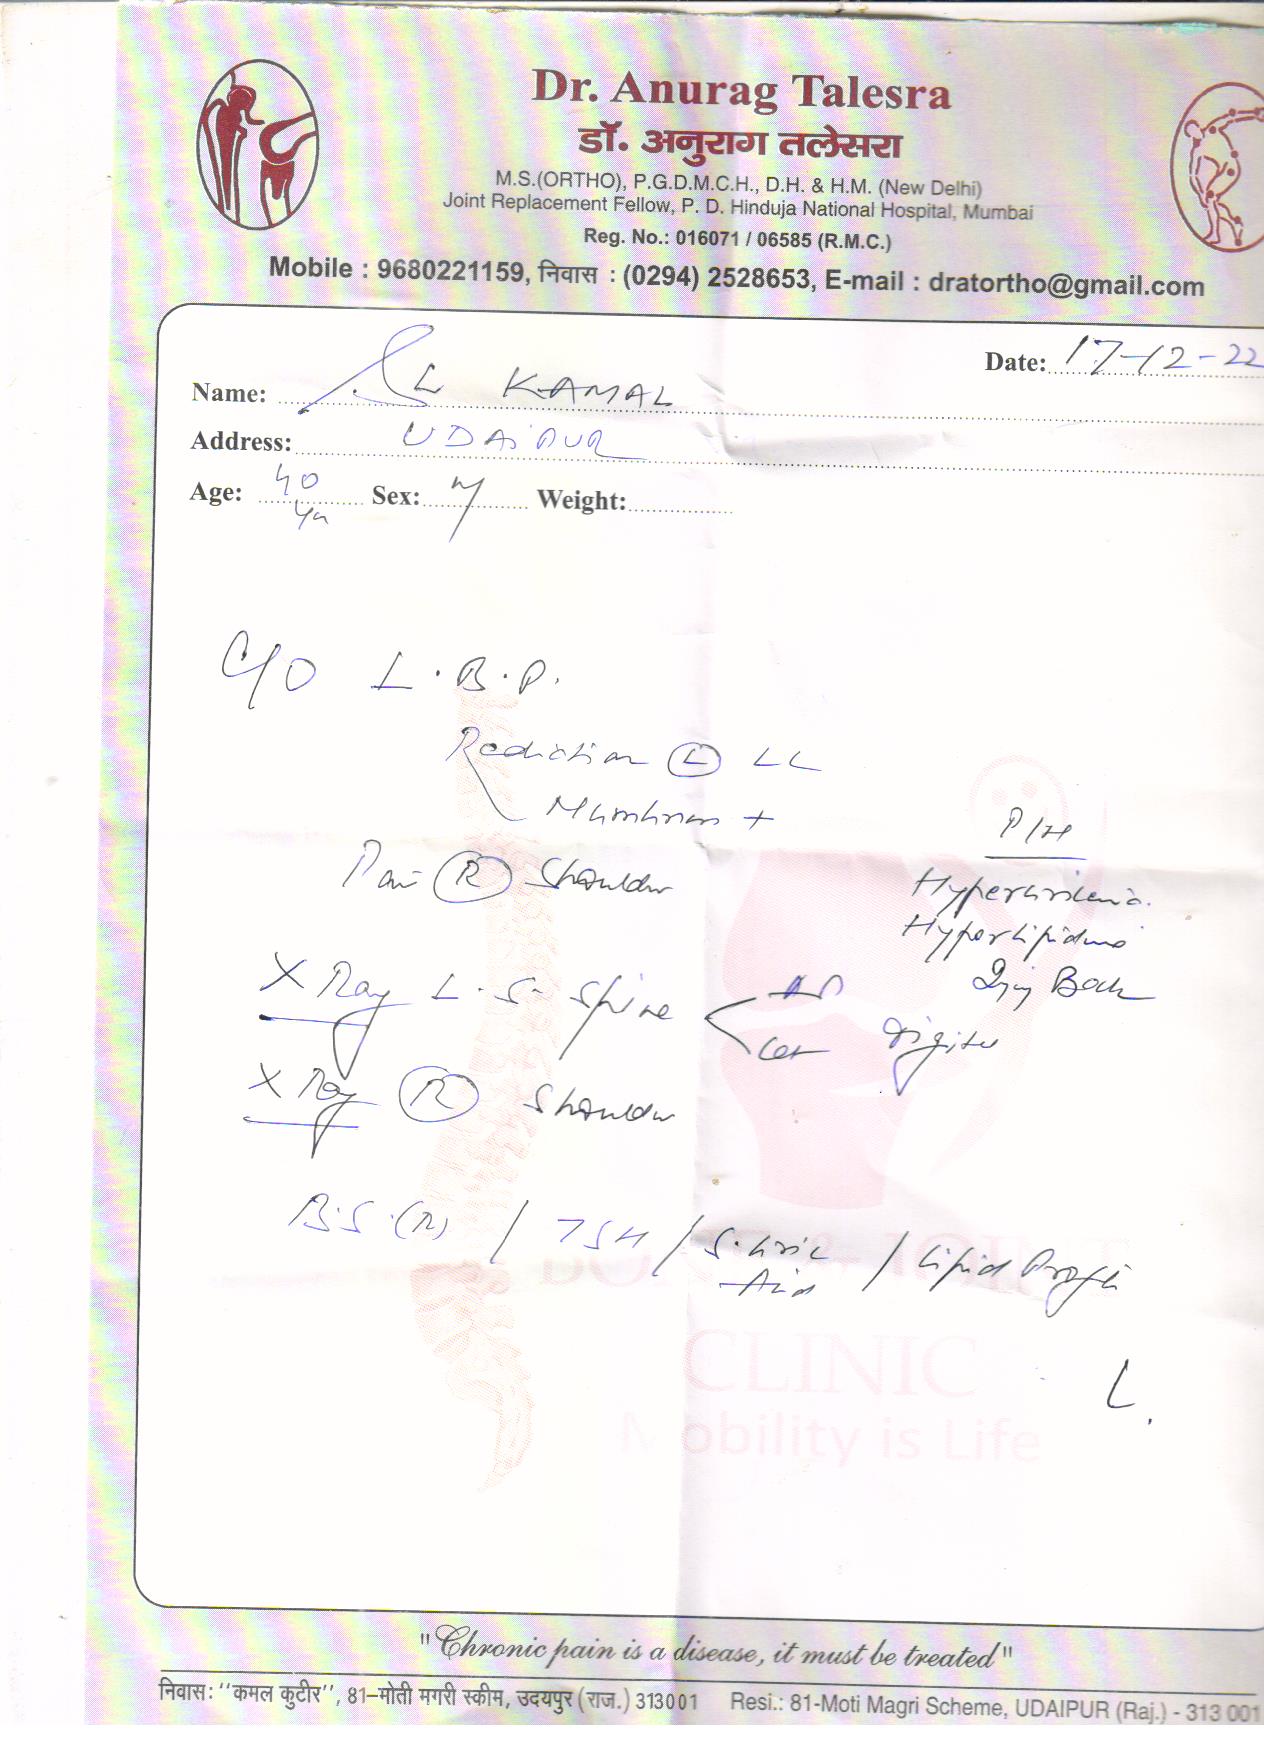 Dr. Anurag Talesra
डॉ. अनुराग तलेसरा
M.S.(ORTHO), P.G.D.M.C.H., D.H. & H.M. (New Delhi)
Joint Replacement Fellow, P. D. Hinduja National Hospital, Mumbai
Reg. No.: 016071 / 06585 (R.M.C.)
Mobile : 9680221159, निवास : (0294) 2528653, E-mail : dratortho@gmail.com
Date: 17-12-22
Name: KAMAL
Address: UDAIPUR
Age: 40 Yr Sex: M Weight:
C/O L.B.P.
Radiation (L) LL
Numbness +
P/H
Pain (R) Shoulder
Hyperuricemia
Hyperlipidemia
X Ray L.S. Spine AP
Injury Back
Lat Digital
X Ray (R) Shoulder
B.S.(R) / TSH / S. Uric Acid / Lipid Profile
BONE & JOINT
CLINIC
Mobility is Life
"Chronic pain is a disease, it must be treated"
निवास: "कमल कुटीर", 81–मोती मगरी स्कीम, उदयपुर (राज.) 313001 Resi.: 81-Moti Magri Scheme, UDAIPUR (Raj.) - 313 001